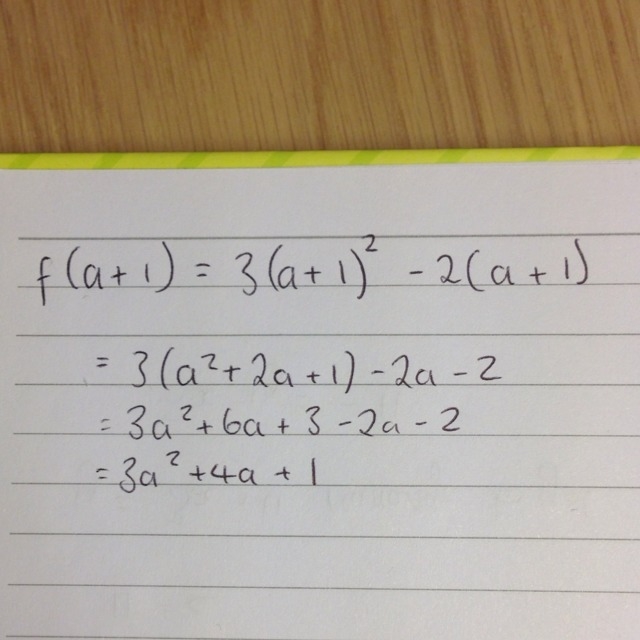 f(a+1) = 3(a+1)² - 2(a+1)
= 3(a²+2a+1) - 2a - 2
= 3a²+6a+3 - 2a - 2
= 3a²+4a+1